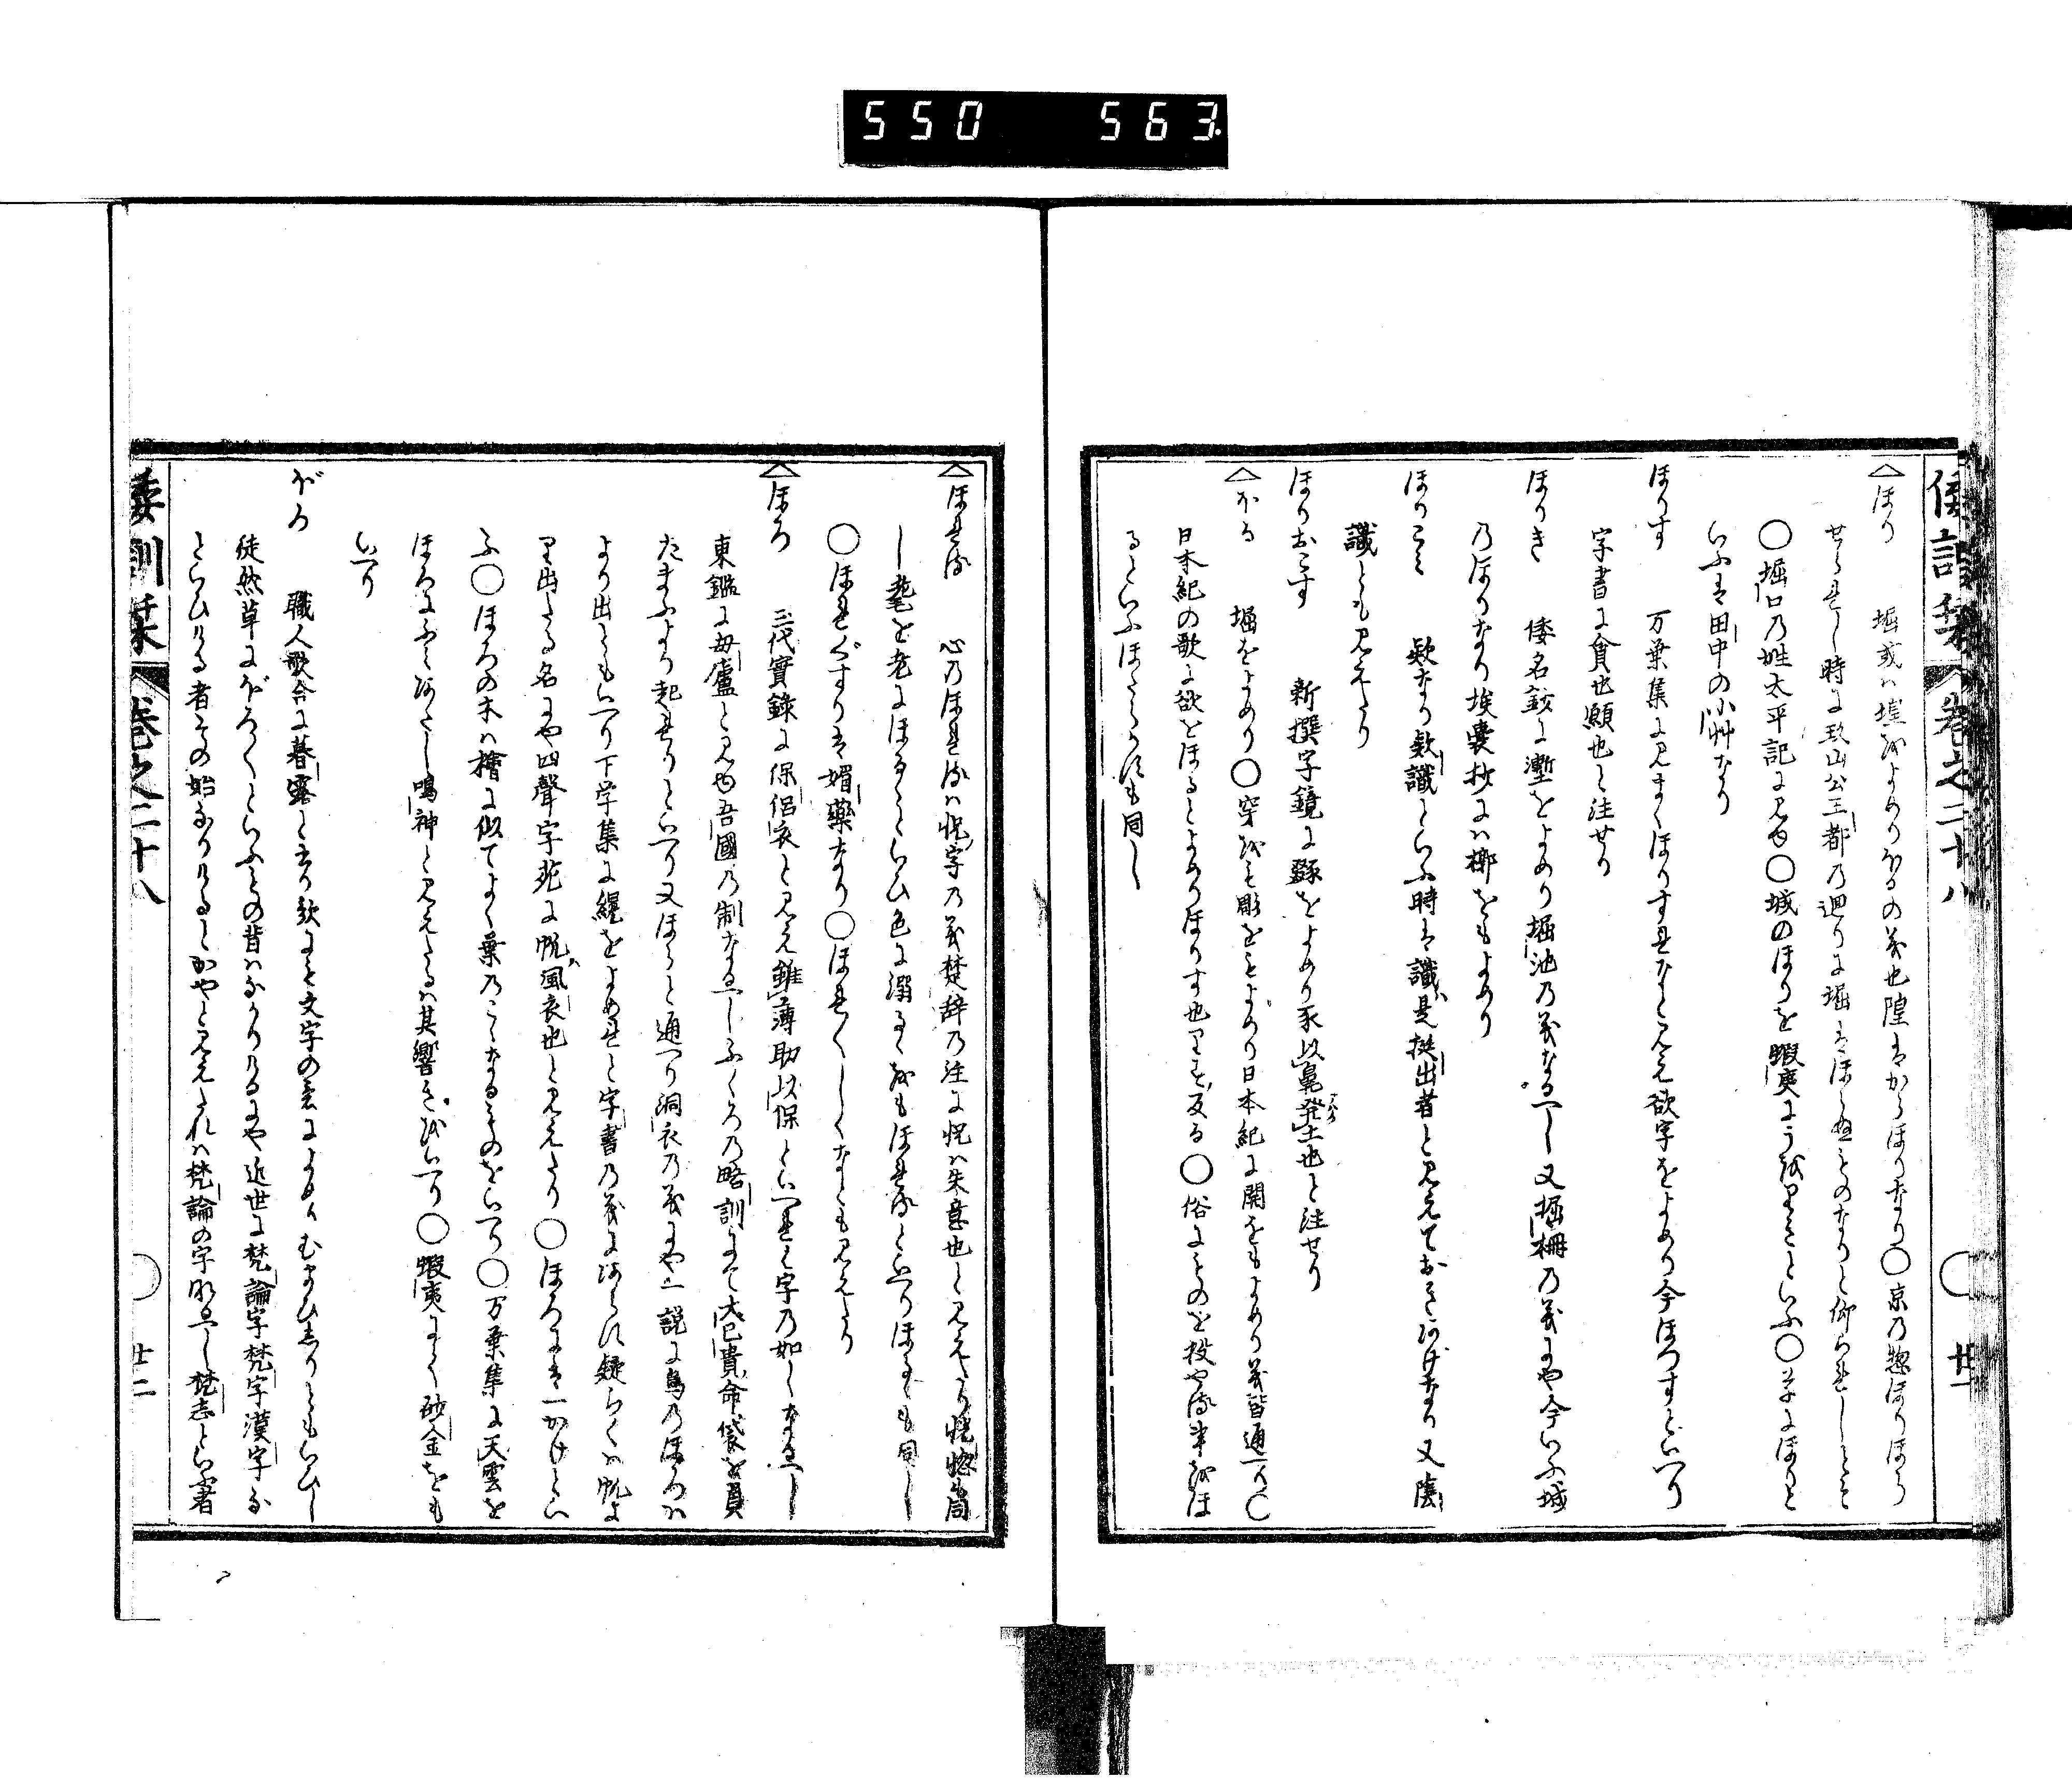 550 563
倭訓栞 巻之二十八 廿一
△ほり 堀或ハ壕をよめりほるの義也隍はからほりなり○京乃惣ほりほら
せられし時に玖山公王都乃廻りに堀はほらぬものなりと仰られしとそ
○堀口乃姓太平記に見ゆ○城のほりを蝦夷にうをりミといふ○草にほりと
いふは田中の小艸なり
ほりす 万葉集に見まくほりすなと見え欲字をよめり今ほつすといへり
字書に貪也願也と注せり
ほりき 倭名鈔に塹をよめり堀池乃義なるへし又堀柵乃義にや今いふ城
乃ほりなり埃嚢抄にハ梛をもよめり
ほりこミ 欵なり欵識といふ時は識ハ是挺出者と見えておきあげなり又陰
識とも見えたり
ほりおこす 新撰字鏡に豩をよめり豕以鼻発土也と注せり
△ほる 堀をよめり○穿をも彫をもよめり日本紀に開をもよめり義皆通へり○
日本紀の歌に欲をほるとよめりほりす也りす反る○俗にものを投やる事をほ
るといふほうるも同し
△ほれる 心乃ほれるハ怳字乃義楚辞乃注に怳ハ失意也と見えたり恍惚も同
し耄を老にほるゝといひ色に溺るゝをもほれるといへりほるゝも同し
○ほれぐすりは媚藥なり○ほれ〱しくなとも見えたり
△ほろ 三代實録に保侶衣と見え雖薄助以保といへれと字乃如くなるへし
東鑑に母廬と見ゆ吾國乃制なるへしふくろ乃略訓にて大己貴命袋を負
たまふより起れりといへり又ほらと通へり洞衣乃義にや一説に鳥乃ほろハ
より出ともいへり下学集に縨をよめれと字書乃義にあらす疑らくハ帆よ
り出たる名にや四聲字苑に帆ハ風衣也と見えたり○ほろには一かけとい
ふ○ほろの木ハ檜に似てよく葉乃こくなるものをいへり○万葉集に天雲を
ほろにふみあたし鳴神と見えたるハ其響きをいへり○蝦夷にて砂金をも
いへり
ぼろ 職人歌合に暮露と云り歌にも文字の表によめりむまひじりともいひし
徒然草にぼろ〱といふもの昔ハなかりけるにや近世に梵論字梵字漢字な
といひける者その始なりけるとかやと見えたれハ梵論の字なへし梵志といふ者
倭訓栞 巻之二十八 廿二